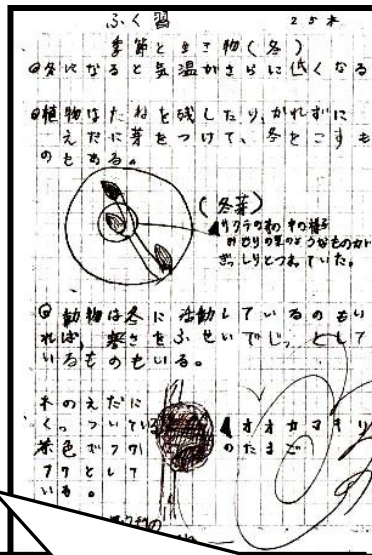 ふく習 25木
季節と生き物(冬)
◎冬になると気温がさらに低くなる
◎植物はたねを残したり、かれずに
えだに芽をつけて、冬をこすも
のもある。
(冬芽)
サクラの芽の中の様子
みどりの葉のようなものがい
ぎっしりとつまっていた。
◎動物は冬に活動しているのもい
れば、寒さをふせいでじっとして
いるものもいる。
木のえだに
くっついている
茶色でフワ
フワとして
いる。
オオカマキリ
のたまご